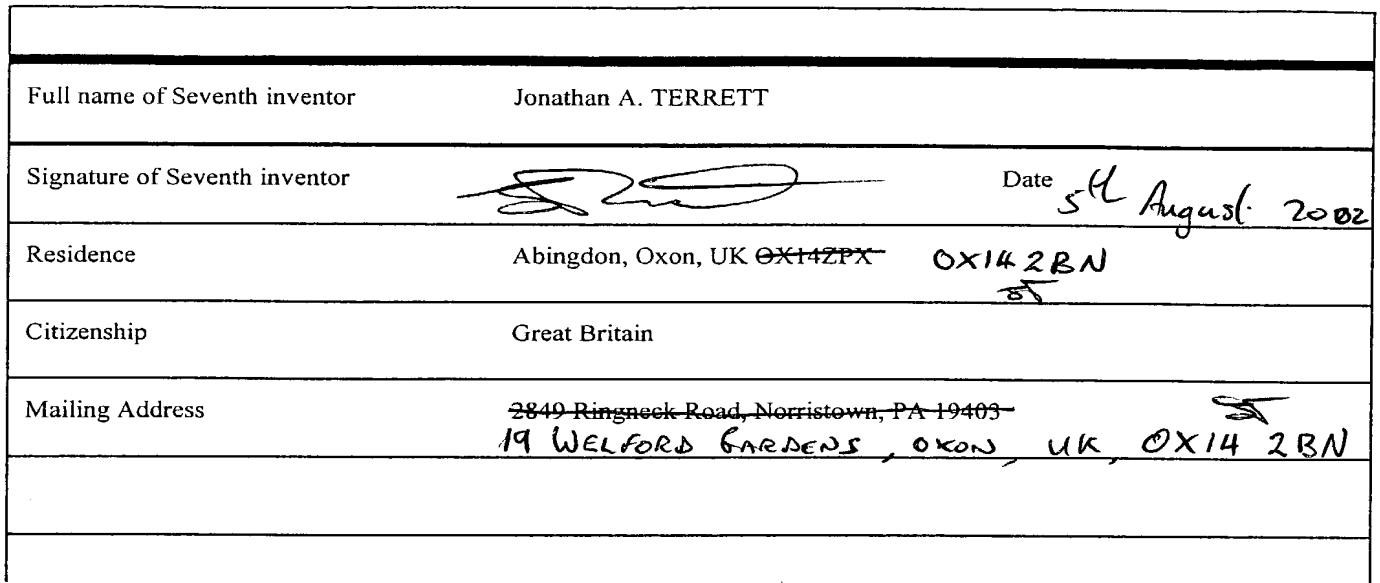 Full name of Seventh inventor Jonathan A. TERRETT
Signature of Seventh inventor Date 5th August 2002
Residence Abingdon, Oxon, UK OX14ZPX OX14 2BN
Citizenship Great Britain
Mailing Address 2849 Ringneck Road, Norristown, PA 19403
19 WELFORD GARDENS, OXON, UK, OX14 2BN